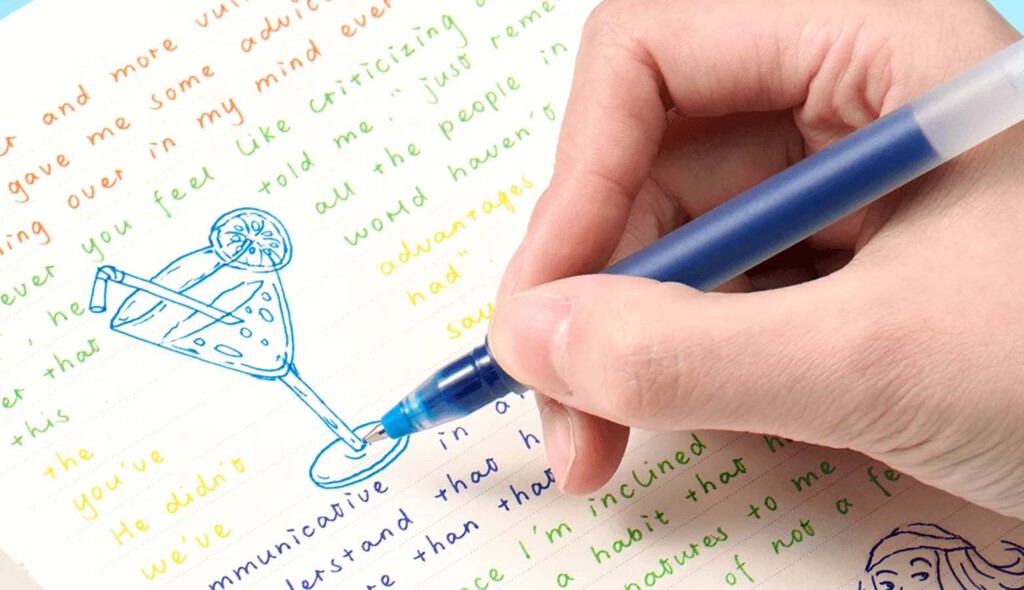 and more vul
gave me some advic
ning over in my mind ever
ever you feel like criticizing
he told me," just reme
er that all the people in
this world haven't
the advantages
you've had".
He didn't say
we've
mmunicative in a
derstand that h
re than that
ce I'm inclined
a habit that h
natures to me
of not a fe